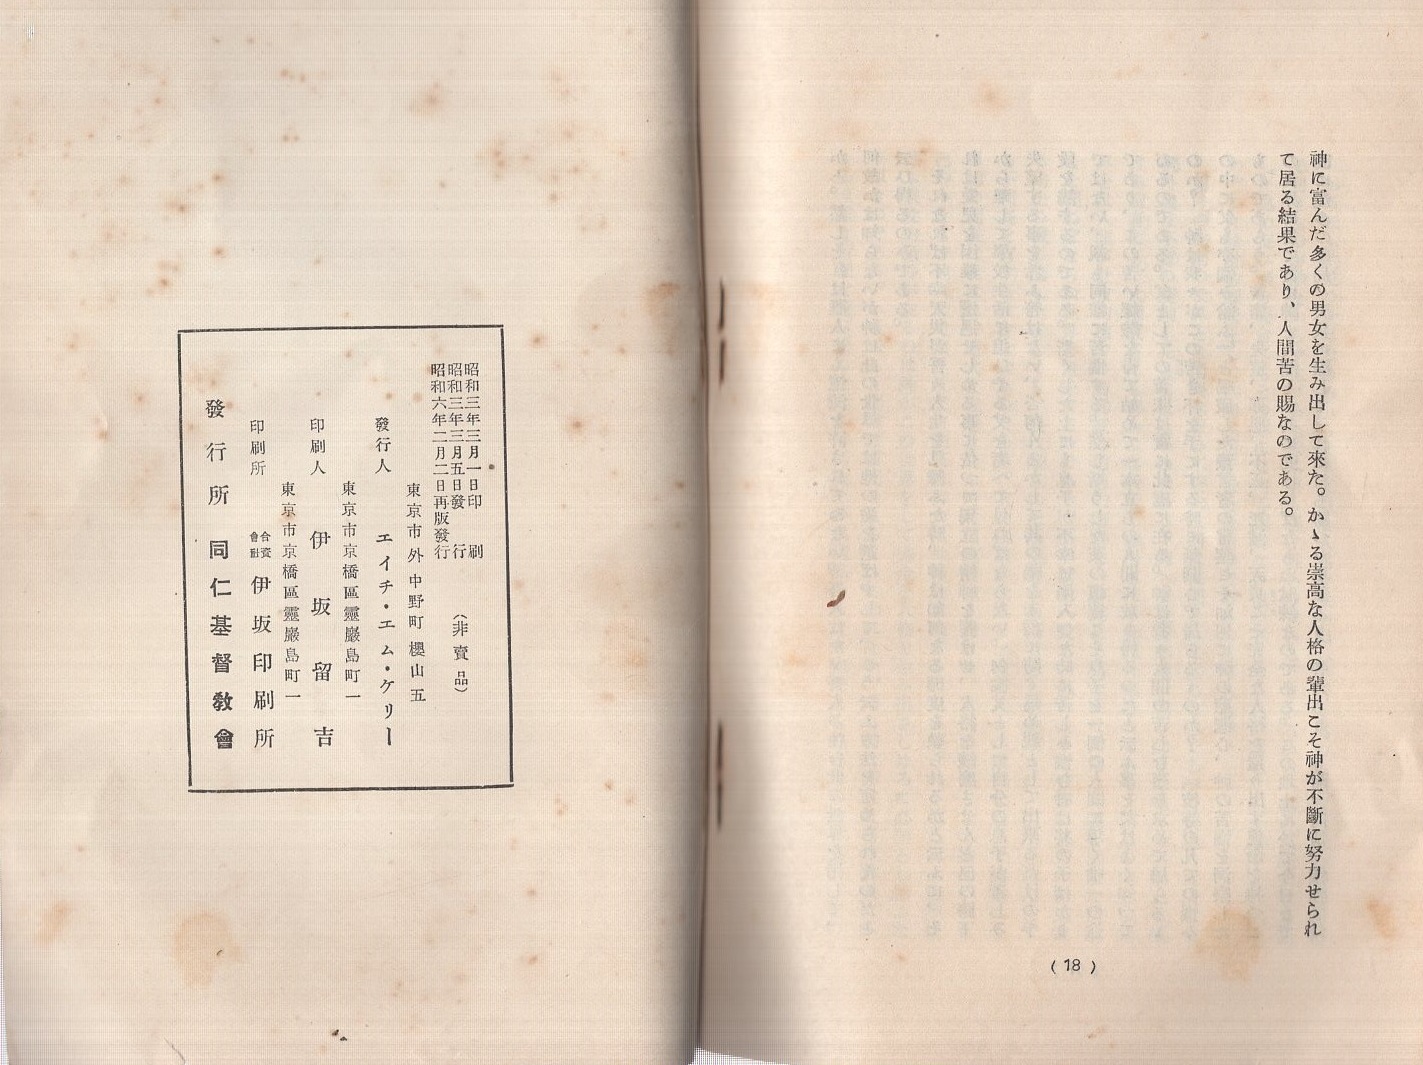 神に富んだ多くの男女を生み出して來た。かゝる崇高な人格の輩出こそ神が不斷に努力せられ
て居る結果であり、人間苦の賜なのである。
( 18 )
昭和三年三月一日印刷
昭和三年三月五日發行 (非賣品)
昭和六年二月二日再版發行
東京市外中野町櫻山五
發行人 エイチ・エム・ケリー
東京市京橋區靈巖島町一
印刷人 伊坂留吉
東京市京橋區靈巖島町一
印刷所 合資會社 伊坂印刷所
發行所 同仁基督敎會